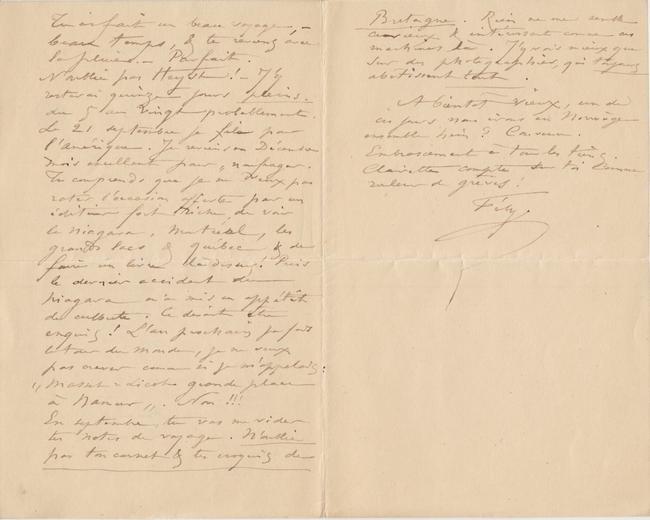 Tu as fait un beau voyage, –
beau temps, & tu reviens avec
la pluie. – Parfait.
N'oublie pas Heyst! – J'y
resterai quinze jours pleins –
du 5 au Vingt probablement.
Le 21 septembre je file pour
l'Amérique. Je reviens en Décembre
mois excellent pour naufrager.
Tu comprends que je ne veux pas
rater l'occasion offerte par un
éditeur fort riche, de voir
le Niagara, Montréal, les
grands lacs & Québec & de
faire un livre là-dessus! Puis
le dernier accident du
Niagara m'a mis en appétit
de culbute. Ce doit être
exquis! L'an prochain je fais
le tour du Monde, je ne veux
pas crever comme si je m'appelais
"Grande place
à Namur". Non !!!
En septembre, tu vas me vider
tes notes de voyage. N'oublie
pas ton carnet & tes croquis de
Bretagne. Rien ne me semble
curieux & intéressant comme ces
machines là. J'y vois mieux que
sur des photographies, qui
abêtissent tout.
A bientôt vieux, un de
ces jours nous irons en Norwège
ensemble hein? Convenu.
Embrassement à tous les tiens.
Clairette compte sur toi comme
valeur de grèves!
Fély